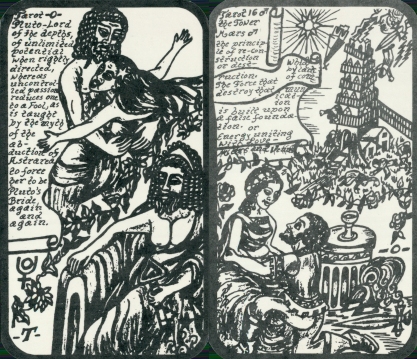 Tarot -O-
Pluto-Lord
of the depths,
of unlimited
potential
when rightly
directed,
whereas
uncontrol
led passion
reduces one
to a Fool, as
is taught
by the myth
of the
ab-
duction of
Astrana
to force
her to be
Pluto's
Bride,
again
and
again.
-T-
Tarot 16 ♂
the Tower
Mars ♂
the princip
le of re-con-
struction
or dest-
ruction.
The Force that
destroy that
Which
by lack
of com
mun
ication
is built upon
a false founda
tion. or
Energy uniting
-O-